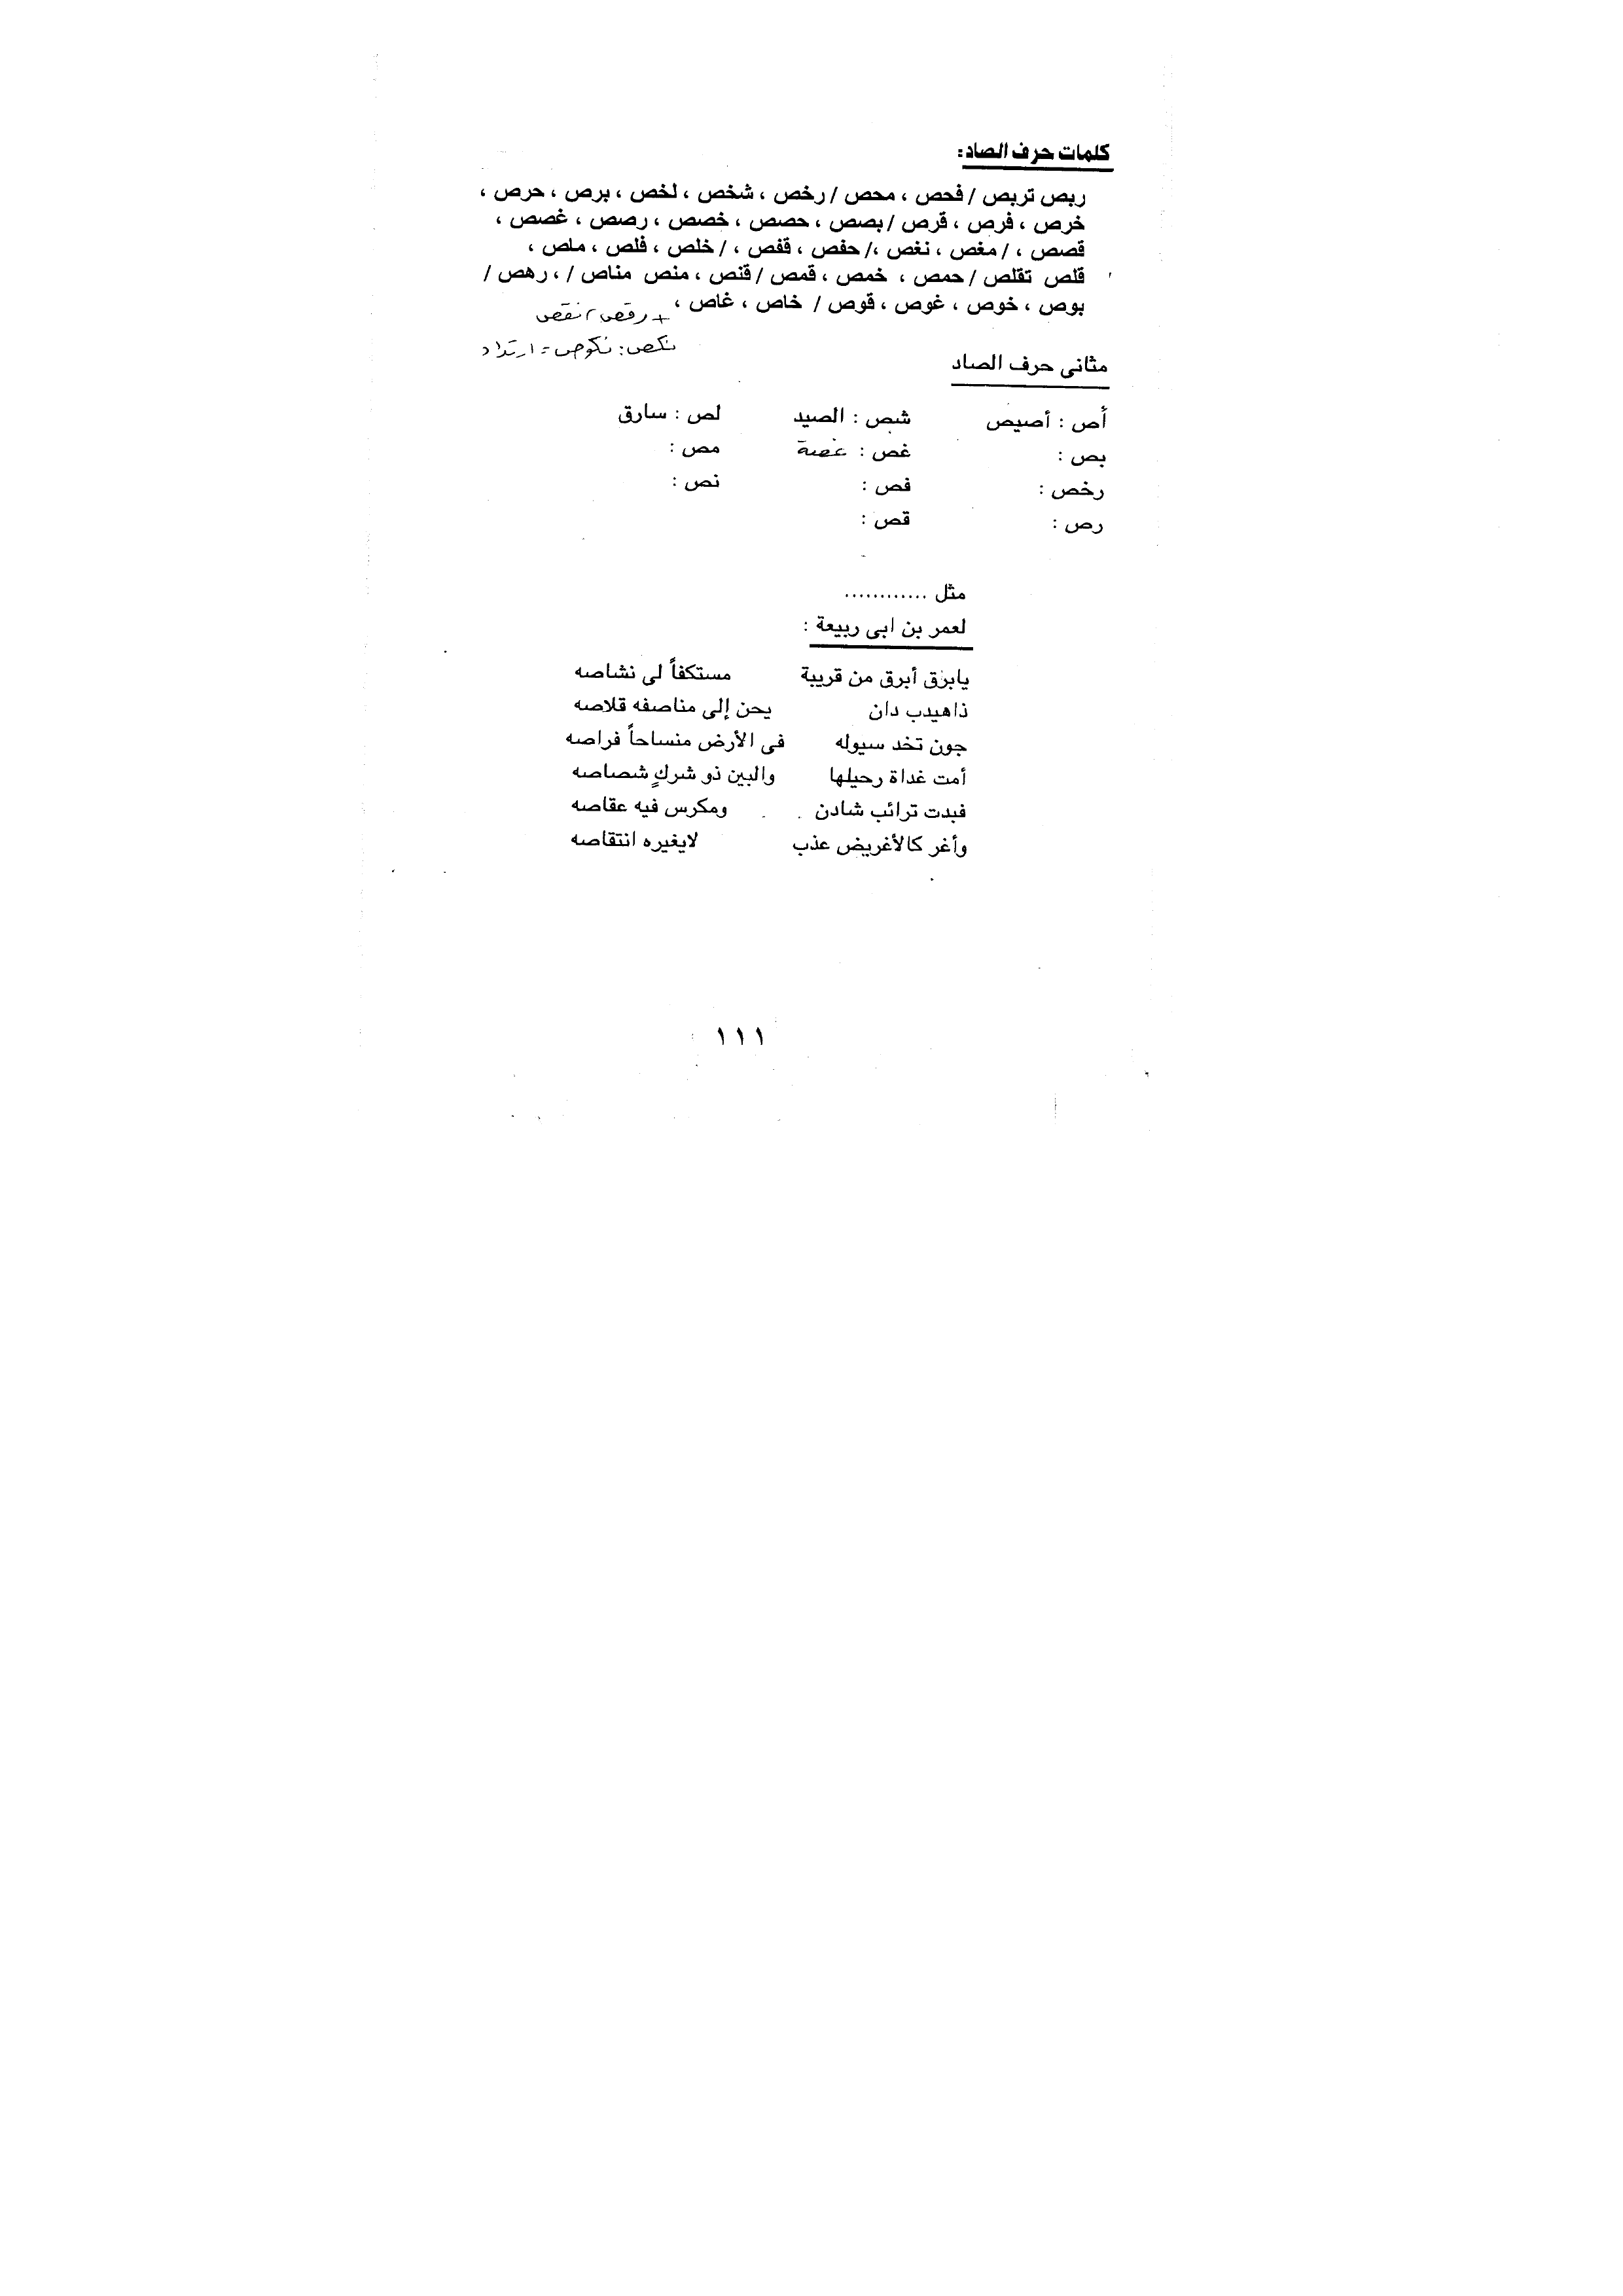 كلمات حرف الصاد:
ربص تربص / فحص ، محص / رخص ، شخص ، لخص ، برص ، حرص ،
خرص ، فرص ، قرص / بصص ، حصص ، خصص ، رصص ، غصص ،
قصص ، / مغص ، نغص ،/ حفص ، قفص ، / خلص ، فلص ، ملص ،
قلص تقلص / حمص ، خمص ، قمص / قنص ، منص مناص / ، رهص /
بوص ، خوص ، غوص ، قوص / خاص ، غاص ،
+ رقص / نقص
نكص: نكوص = ارتداد
مثانى حرف الصاد
أص : أصيص شص : الصيد لص : سارق
بص : غص : غصة مص :
رخص : فص : نص :
رص : قص :
مثل ............
لعمر بن ابى ربيعة :
يابرق أبرق من قريبة مستكفاً لى نشاصه
ذاهيدب دان يحن إلى مناصفه قلاصه
جون تخد سيوله فى الأرض منساحاً فراصه
أمت غداة رحيلها والبين ذو شركٍ شصاصه
فبدت ترائب شادن ومكرس فيه عقاصه
وأغر كالأغريض عذب لايغيره انتقاصه
١١١